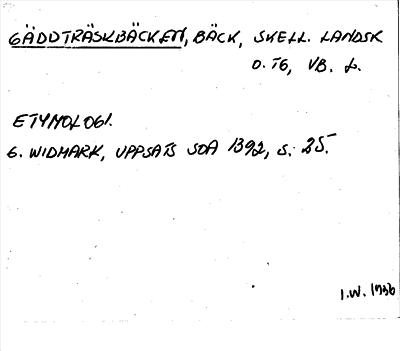 GÄDDTRÄSKBÄCKEN, BÄCK, SKELL. LANDSK
O. TG, VB. L.
ETYMOLOGI.
G. WIDMARK, UPPSATS SOA 1392, S. 25.
I.W. 1936